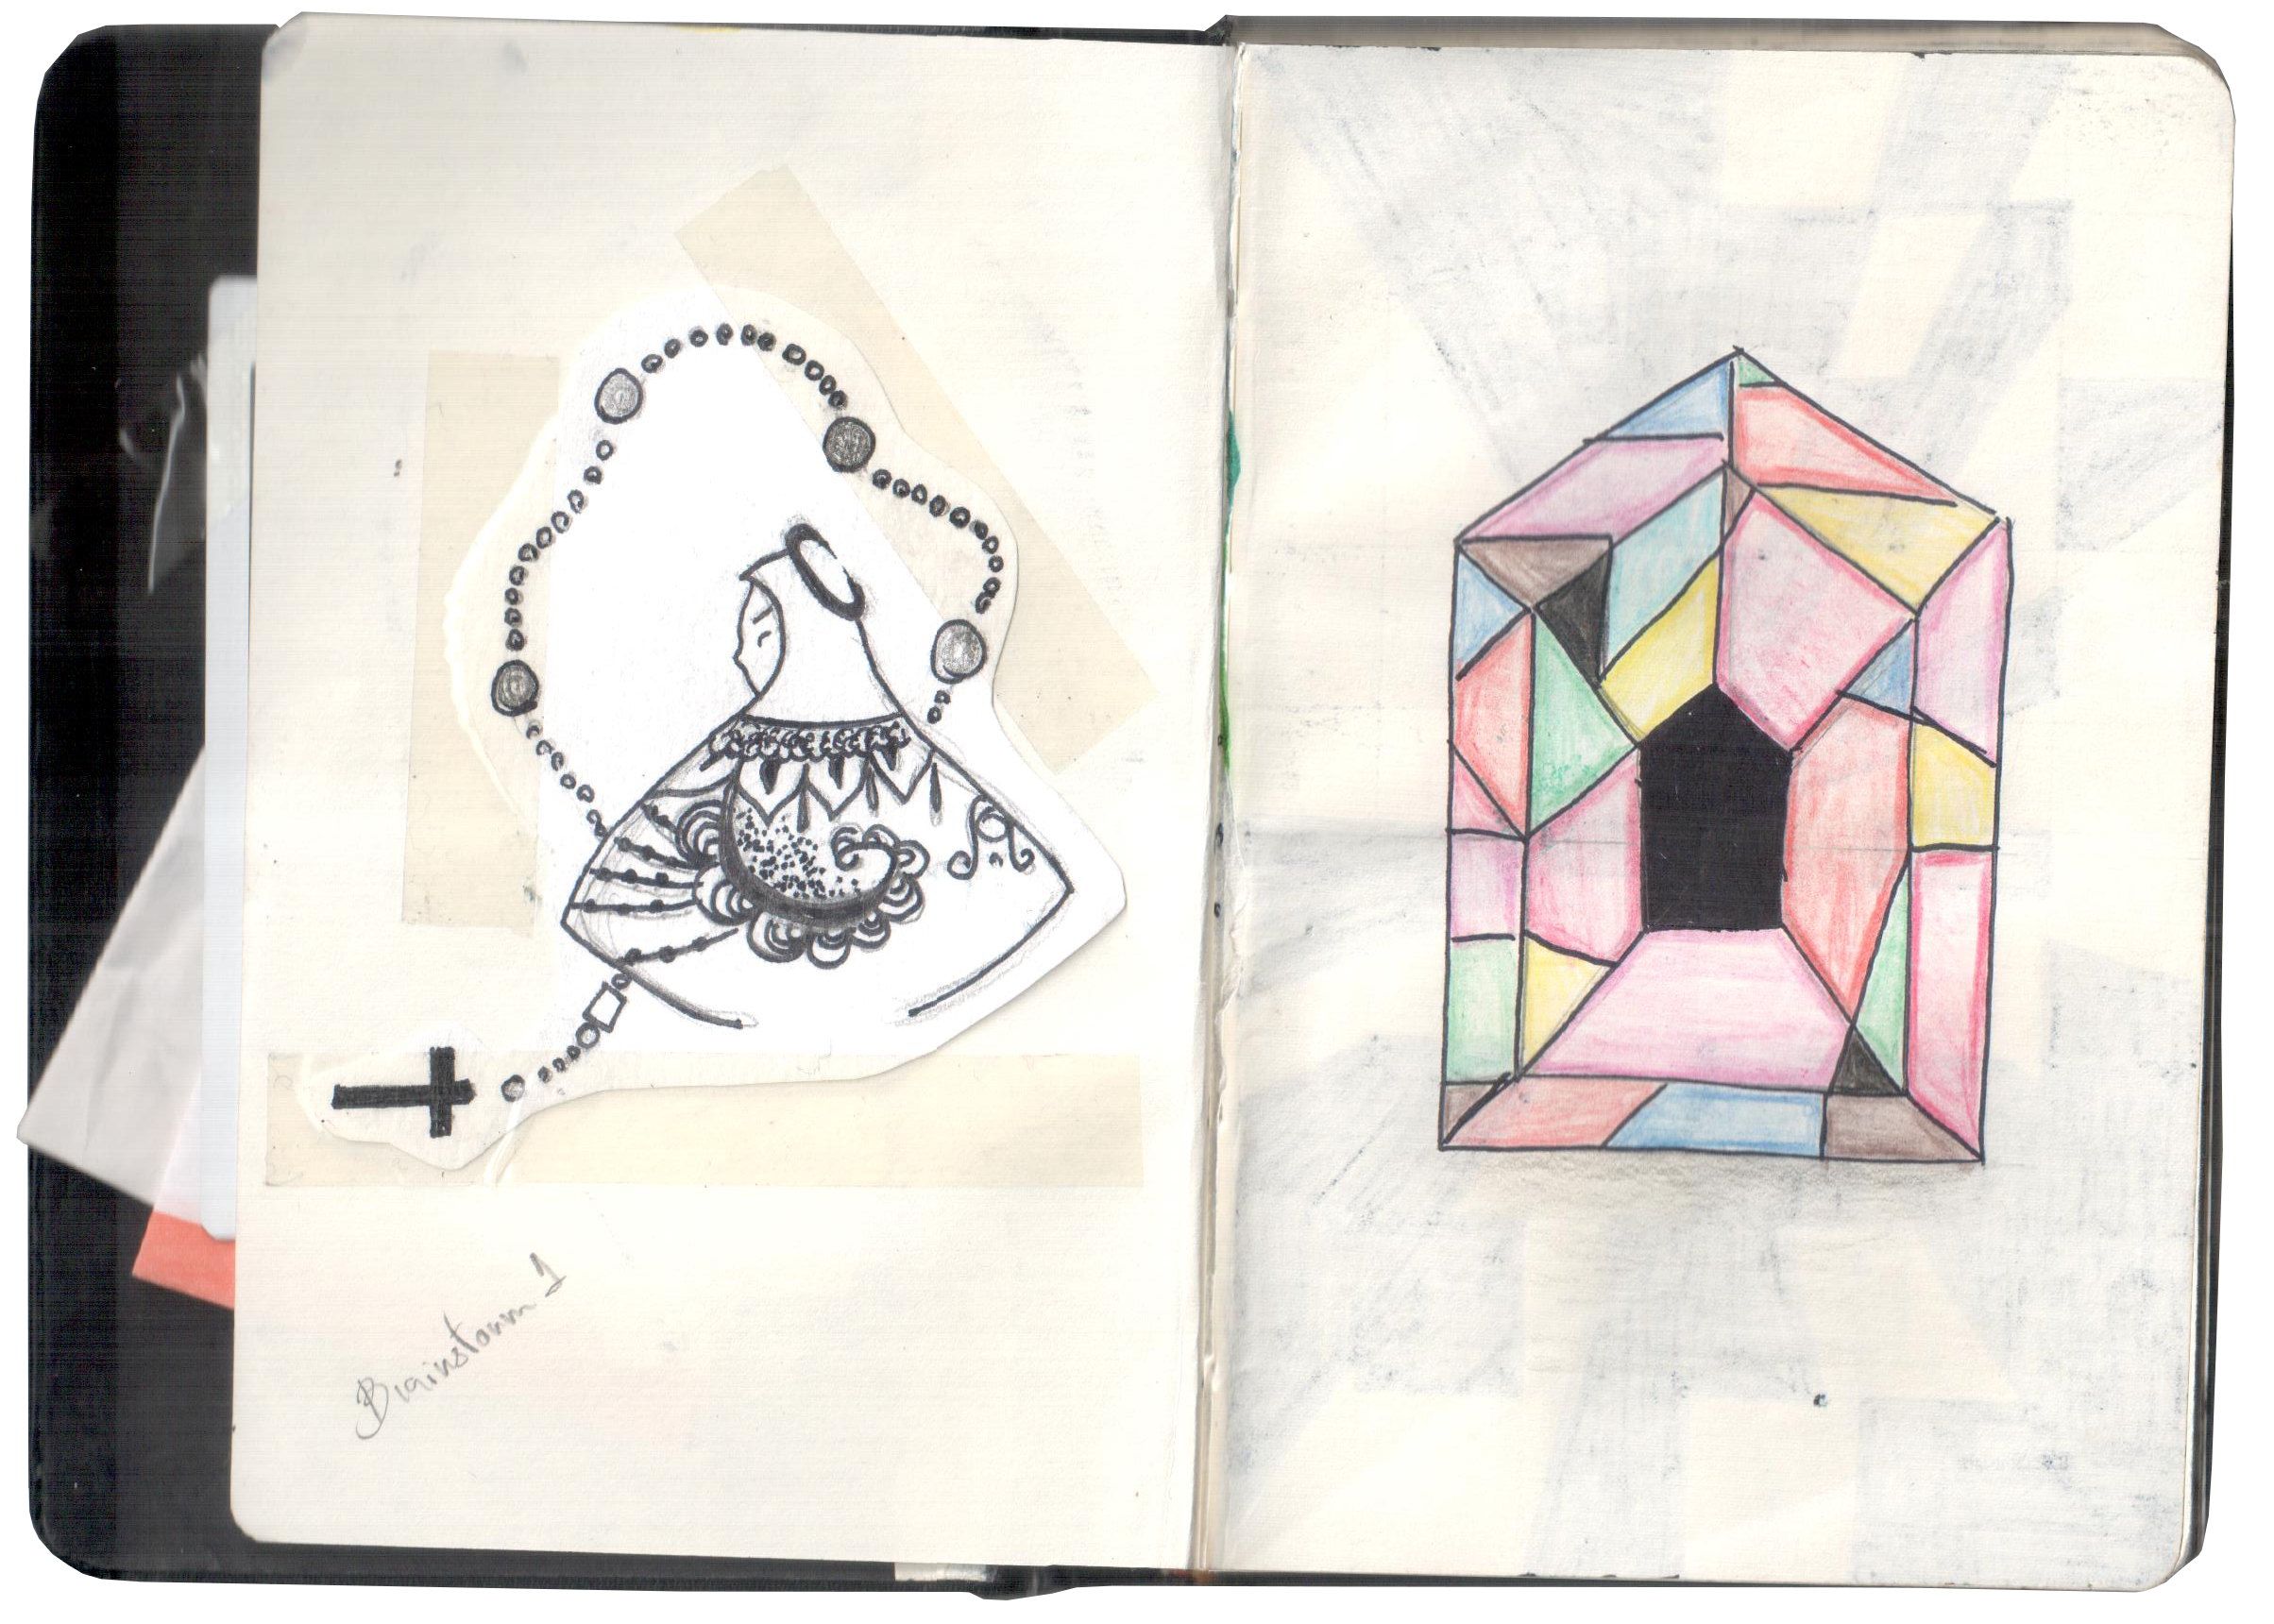 Brainstorm 1